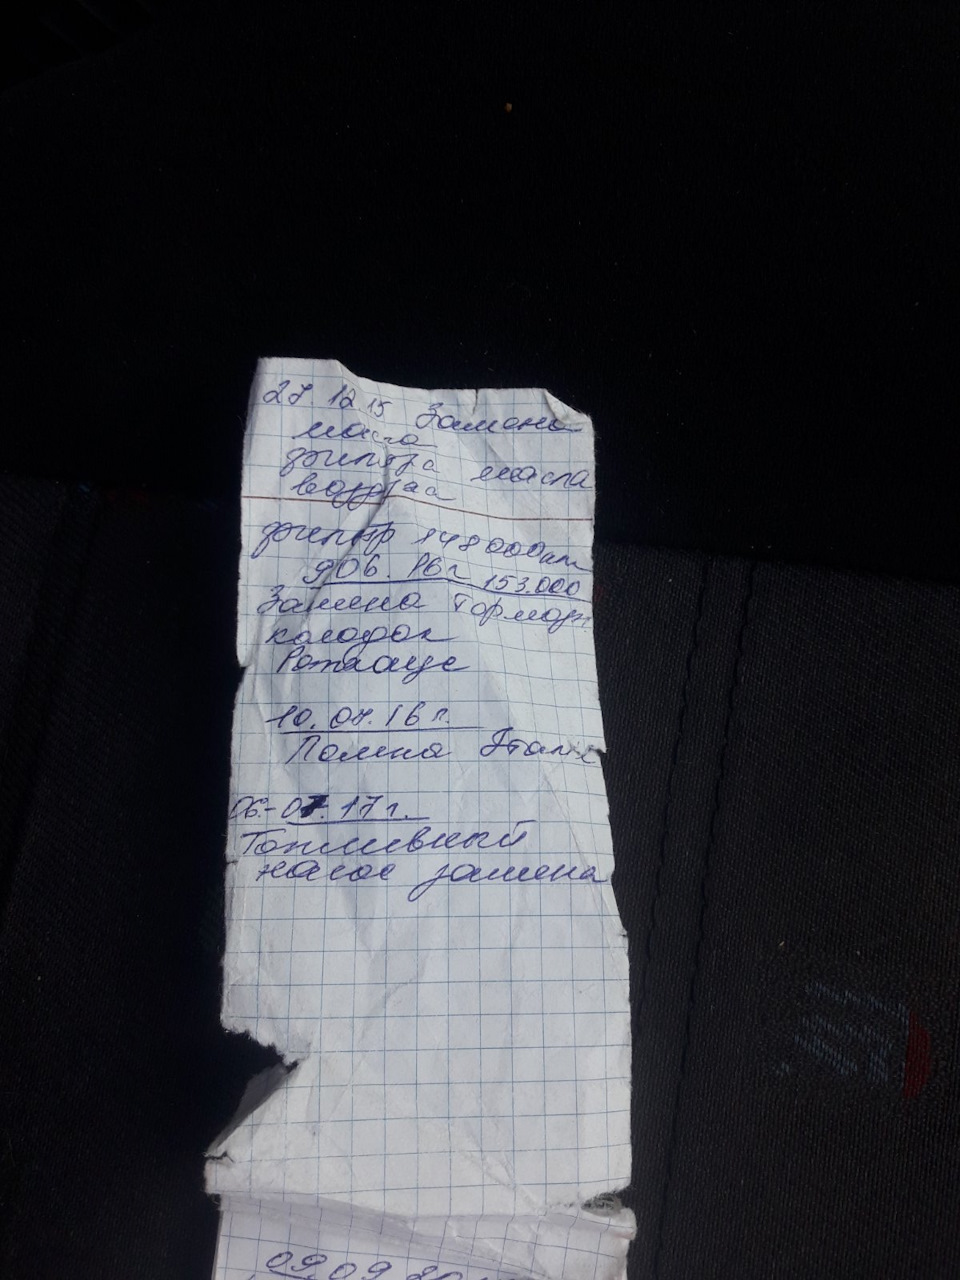 27.12 15 Замена
масла
фильтра масла
воздуха
фильтр 148000км
906.16г 153.000
Замена Тормозн.
колодок
10.07.16г.
Помпа
06.-07.17г.
Топливный
насос замена
09 09